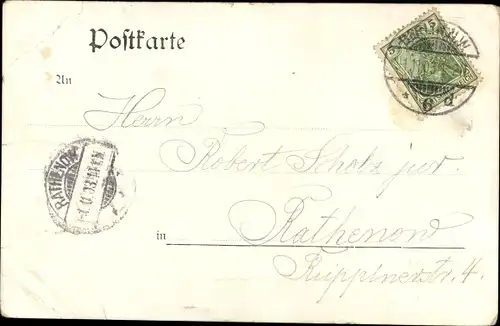 Postkarte
An
Herrn
Robert Scholz jur.
in Rathenow
Ruppinerstr. 4.
RATHENOW